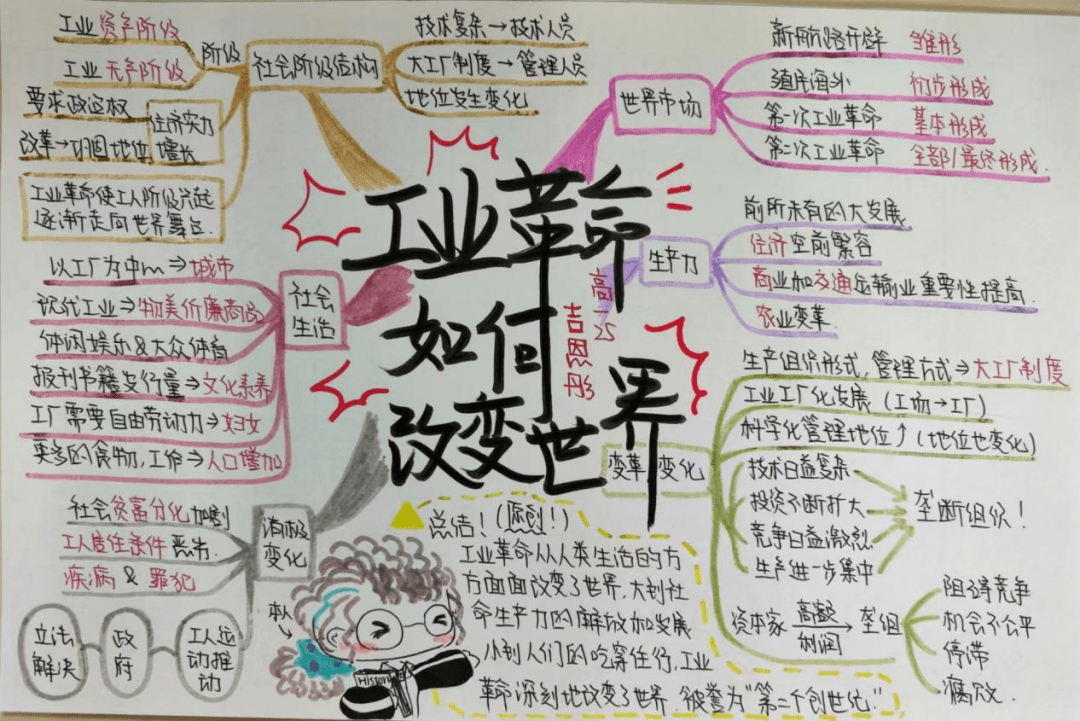 工业革命
如何
改变世界
高一25
吉恩彤
社会阶级结构
阶级
工业资产阶级
工业无产阶级
经济实力
增长
要求政治权
改革→巩固地位
工业革命使工人阶级兴起
逐渐走向世界舞台.
技术复杂→技术人员
大工厂制度→管理人员
地位发生变化
世界市场
新航路开辟 雏形
殖民海外 初步形成
第一次工业革命 基本形成
第二次工业革命 全部/最终形成.
生产力
前所未有的大发展
经济空前繁容
商业加交通运输业重要性提高.
农业变革.
社会
生活
以工厂为中m⇒城市
现代工业⇒物美价廉商品
休闲娱乐&大众体育
报刊书籍发行量⇒文化素养
工厂需要自由劳动力⇒妇女
更多的食物,工作⇒人口增加
变革变化
生产组织形式,管理方式⇒大工厂制度
工业工厂化发展(工场→工厂)
科学化管理地位↑(地位也变化)
技术日益复杂
投资不断扩大
竞争日益激烈
生产进一步集中
垄断组织!
资本家 高额利润→ 垄组
阻碍竞争
机会不公平
停滞
腐败.
消极
变化
社会贫富分化加剧
工人居住条件恶劣.
疾病&罪犯
工人运
动推
动
政
府
立法
解决
本人
History
总结!(原创!)
工业革命从人类生活的方
方面面改变了世界,大到社
会生产力的解放加发展
小到人们的吃穿住行.工业
革命深刻地改变了世界.被誉为“第二个创世纪.”